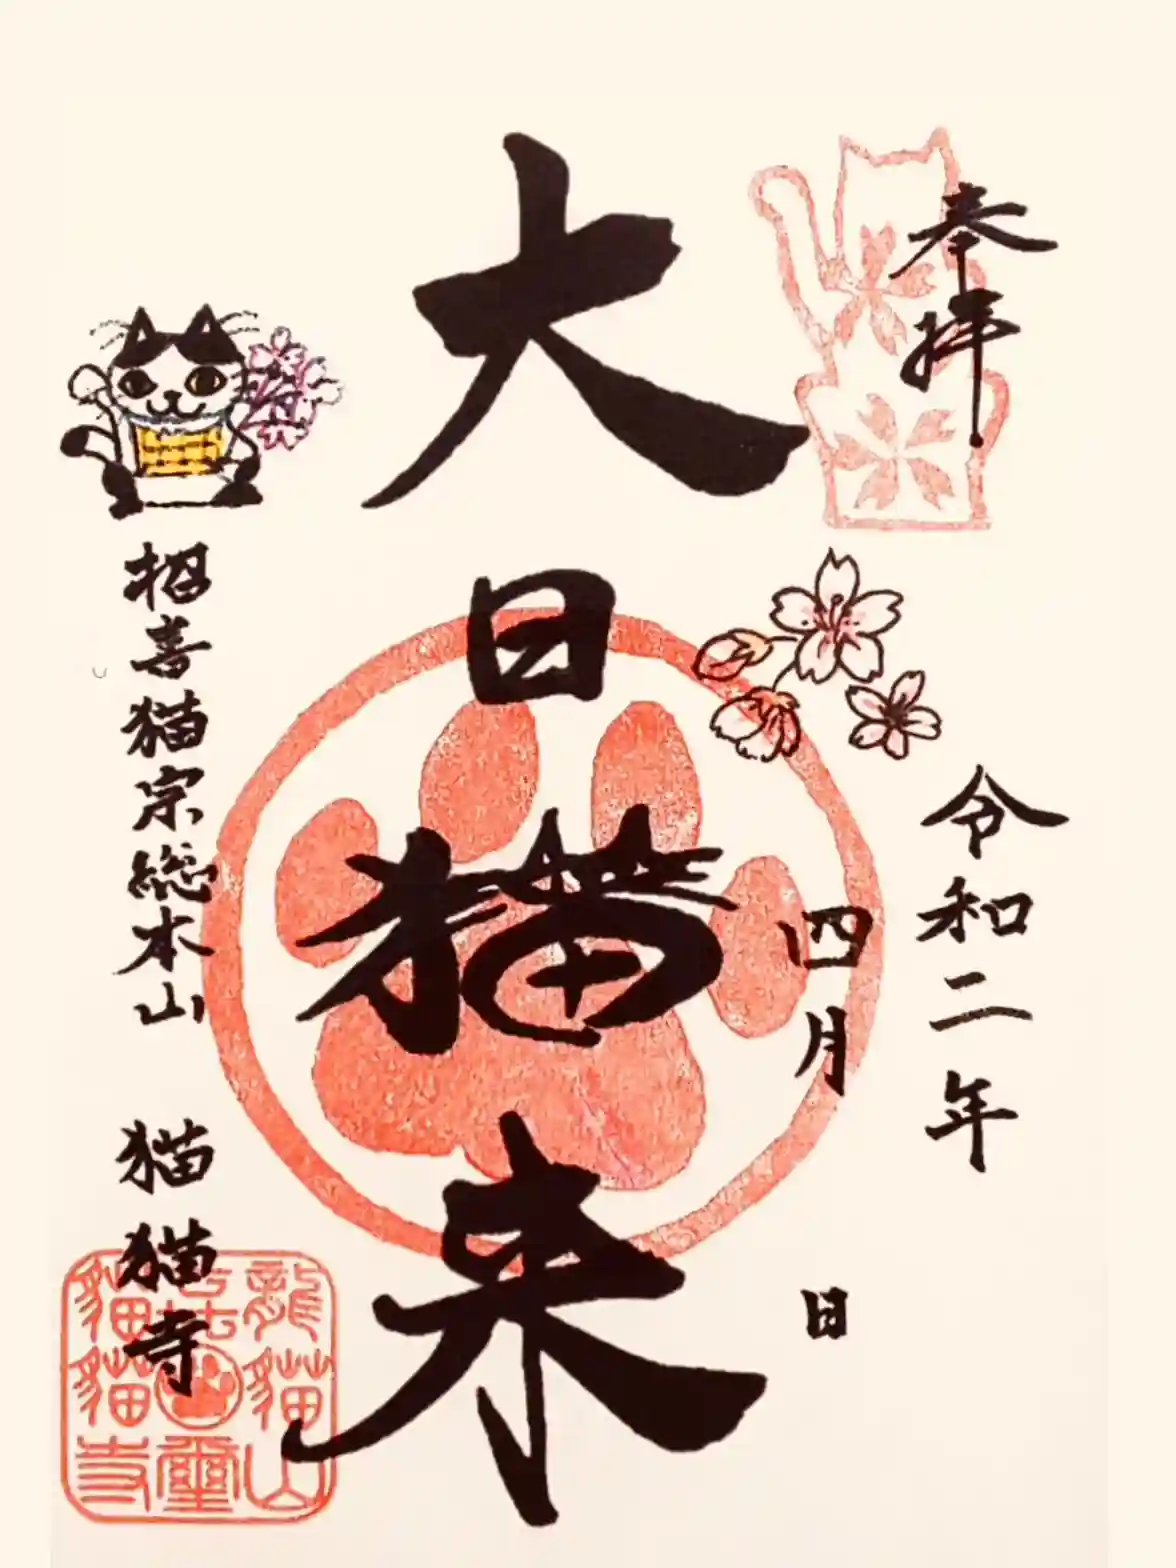 奉拝
令和二年
四月 日
大日猫来
招喜猫宗総本山 猫猫寺
龍猫山
猫猫寺